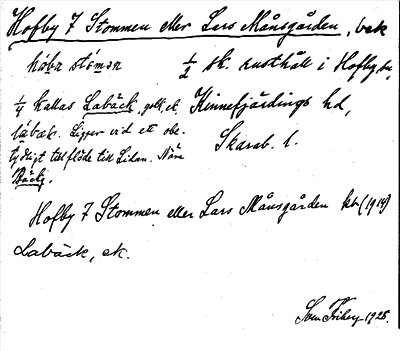 Hofby 7 Stommen eller Lars Månsgården, bek
hôbz stòmən 1/2 sk. rusthåll i Hofby by,
1/4 kallas Labäck, gdk. ek. Kinnefjärdings hd,
lábæk. Ligger vid ett obe-
tydligt tillflöde till Lidan. När Skarab. l.
Bäck.
Hofby 7 Stommen eller Lars Månsgården kb (1914)
Labäck, ek.
Sven Friberg 1928.